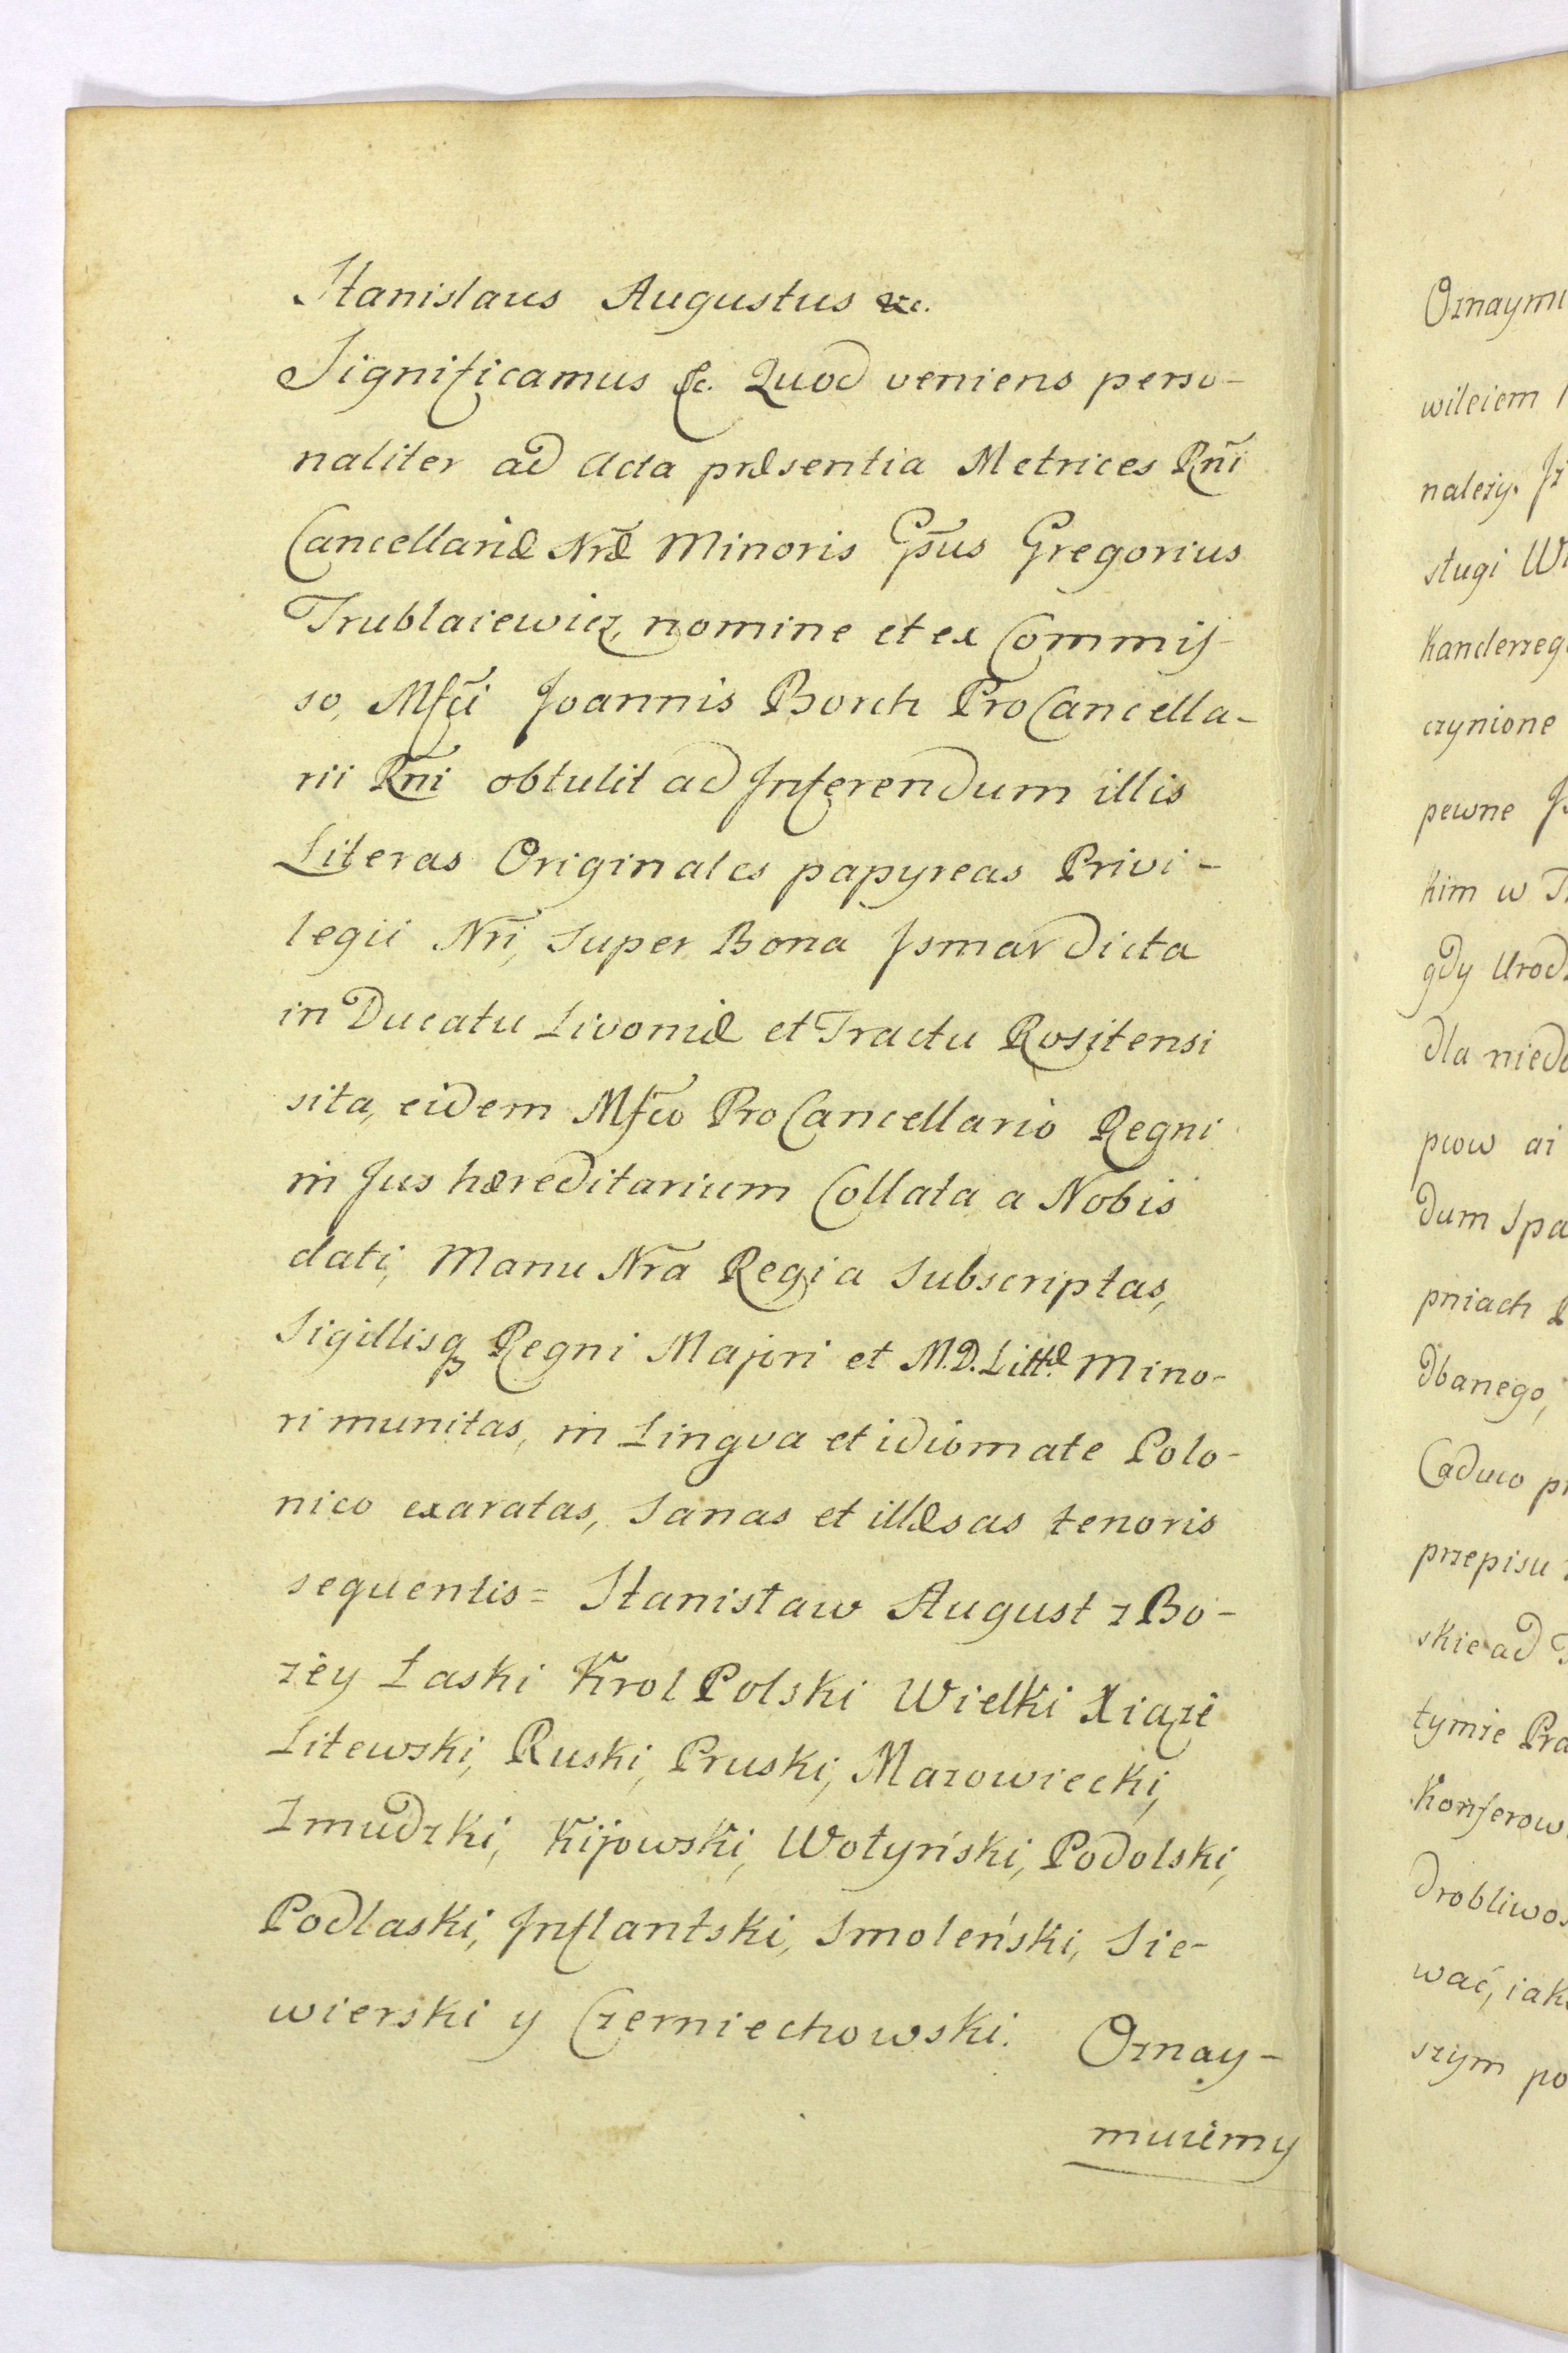 Stanislaus Augustus &c.
Significamus &c. Quod veniens perso-
naliter ad Acta præsentia Metrices Rñi
Cancellariæ Nræ Minoris Gsus Gregorius
Trublaiewicz, nomine et ex Commis-
so, Mfci Joannis Borch ProCancella-
rii Rñi obtulit ad Inferendum illis
Literas Originales papyreas Privi-
legii Nri, Super Bona Ismar dicta
in Ducatu Livoniæ et Tractu Rositensi
sita, eidem Mfco ProCancellario Regni
in Jus hæreditarium Collata a Nobis
dati, Manu Nra Regia Subscriptas,
Sigillisq Regni Majori et M.D.Littæ Mino-
ri munitas, in Lingva et idiomate Polo-
nico exaratas, Sanas et illæsas tenoris
sequentis = Stanisław August z Bo-
żey Łaski Krol Polski Wielki Xiąże
Litewski, Ruski, Pruski, Mazowiecki,
Zmudzki, Kijowski, Wołyński, Podolski,
Podlaski, Inflantski, Smoleński, Sie-
wierski y Czerniechowski. Oznay-
muiemy
Oznaymu
wileiem
należy. Iż
sługi
Kanclerzeg
czynione
pewne
kim w
gdy Urodz
dla niedo
pcow ai
dum Spa
pniach
dbanego,
Caduco pr
przepisu
skie ad
tymże Pra
Konferow
drobliwos
wać, iak
szym po